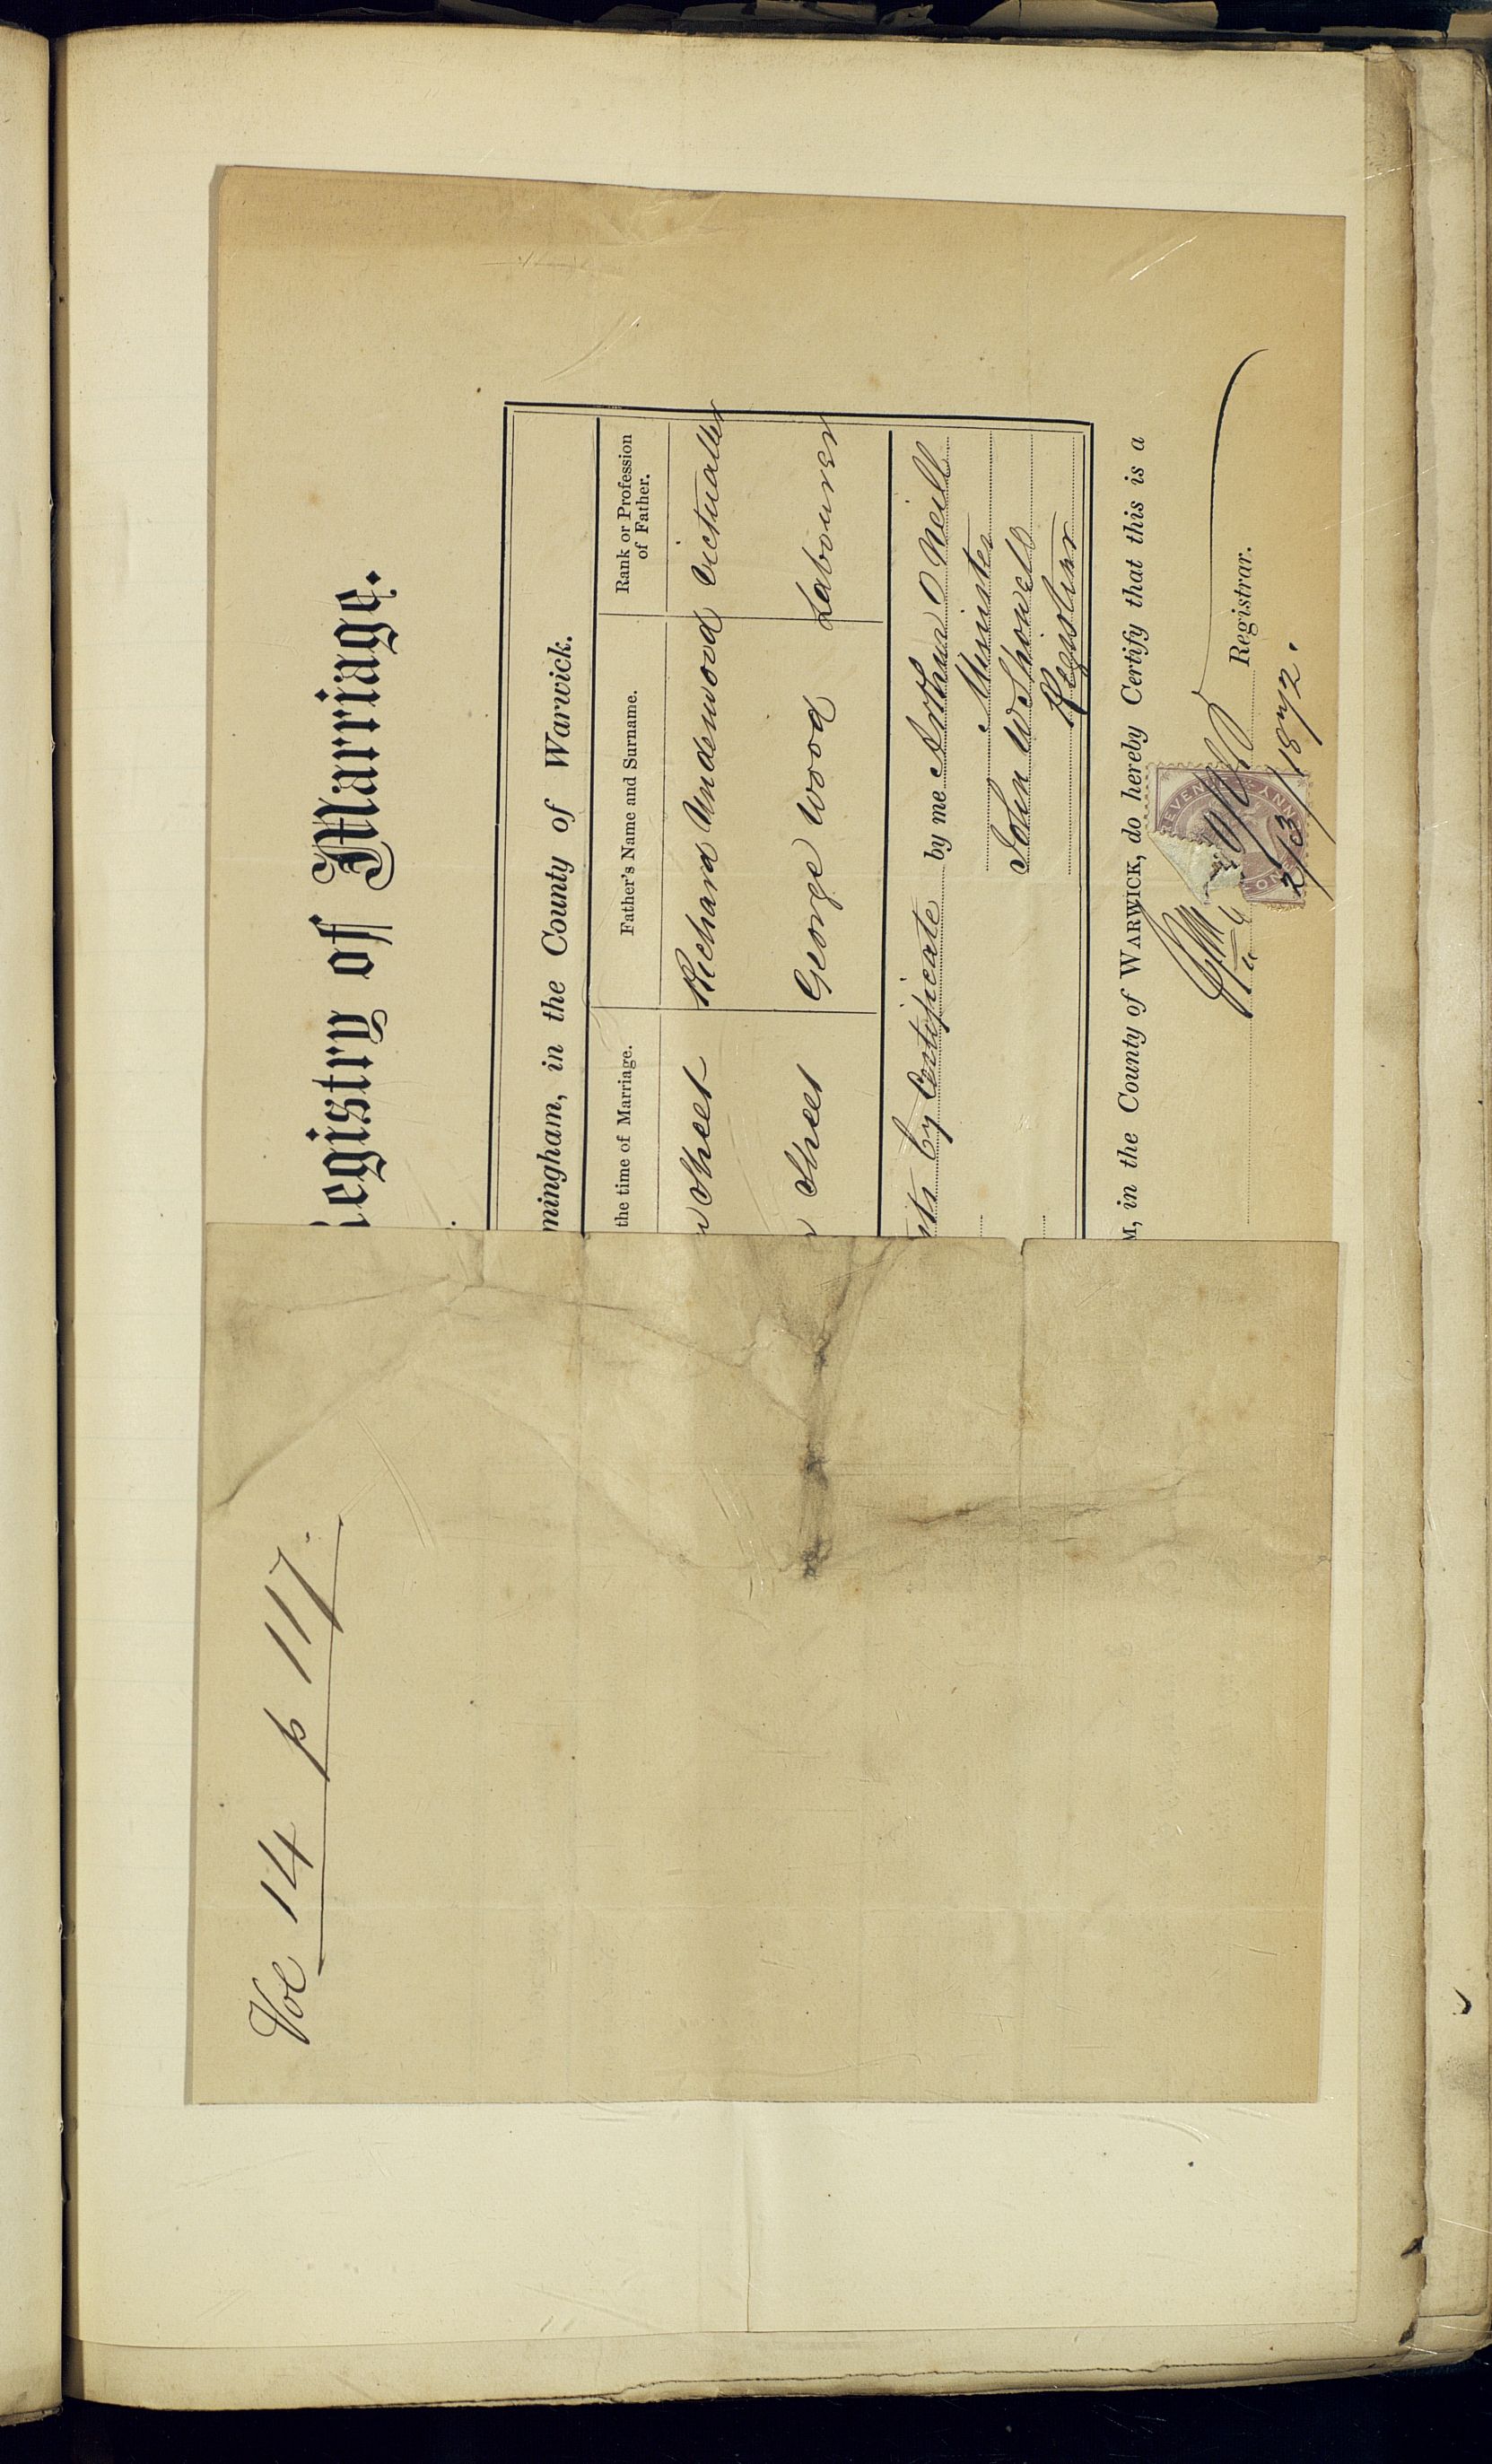 Vol 14 p 117
Registry of Marriage.
mingham, in the County of Warwick.
the time of Marriage.
Father's Name and Surname.
Rank or Profession
of Father.
Street
Richard Underwood
Victualler
Street
George Wood
Labourer
by Certificate by me Arthur O Neill
Minister
John W Showell
Registrar
M, in the County of WARWICK, do hereby Certify that this is a
Registrar.
2/3/1872.